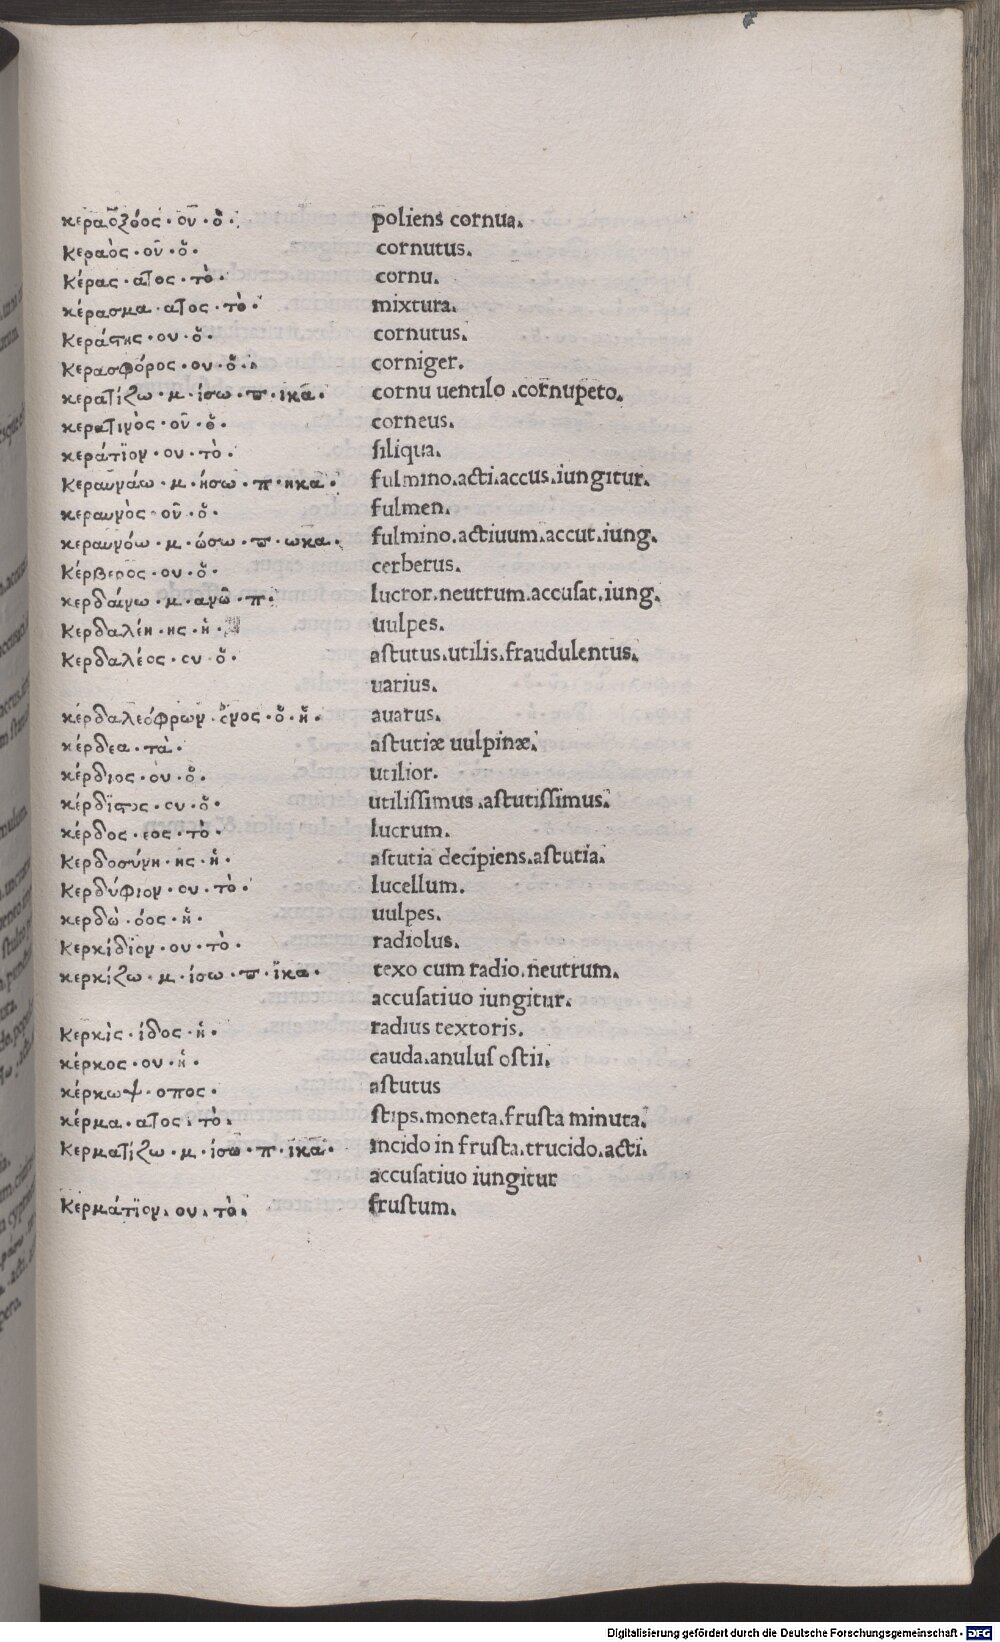 κεραοξόος · οῦ · ὁ · poliens cornua.
κεραὸς · οῦ · ὁ · cornutus.
κέρας · ατος · τὸ · cornu.
κέρασμα · ατος · τὸ · mixtura.
κεράστης · ου · ὁ · cornutus.
κερασφόρος · ου · ὁ · corniger.
κερατίζω · μ · ίσω · π · ικα · cornu uentilo .cornupeto.
κερατινὸς · οῦ · ὁ · corneus.
κεράτϊον · ου · τὸ · siliqua.
κεραυνάω · μ · ήσω · π · ηκα · fulmino.acti.accus.iungitur.
κεραυνὸς · οῦ · ὁ · fulmen.
κεραυνόω · μ · ώσω · π · ωκα · fulmino.actiuum.accut.iung.
κέρβερος · ου · ὁ · cerberus.
κερδαίνω · μ · ανῶ · π · lucror.neutrum.accusat.iung.
κερδαλέη · ης · ἡ · uulpes.
κερδαλέος · ου · ὁ · astutus.utilis.fraudulentus.
uarius.
κερδαλεόφρων · ονος · ὁ · ἡ · auarus.
κέρδεα · τὰ · astutiæ uulpinæ.
κέρδιος · ου · ὁ · utilior.
κέρδϊστος · ου · ὁ · utilissimus .astutissimus.
κέρδος · εος · τὸ · lucrum.
κερδοσύνη · ης · ἡ · astutia decipiens.astutia.
κερδύφιον · ου · τὸ · lucellum.
κερδὼ · όος · ἡ · uulpes.
κερκίδϊον · ου · τὸ · radiolus.
κερκίζω · μ · ίσω · π · ικα · texo cum radio.neutrum.
accusatiuo iungitur.
κερκὶς · ίδος · ἡ · radius textoris.
κέρκος · ου · ἡ · cauda.anulus ostii.
κέρκωψ · οπος · astutus
κέρμα · ατος · τὸ · stips.moneta.frusta minuta.
κερματίζω · μ · ίσω · π · ικα · incido in frusta.trucido.acti.
accusatiuo iungitur
κερμάτϊον · ου · τὸ · frustum.
Digitalisierung gefördert durch die Deutsche Forschungsgemeinschaft - DFG